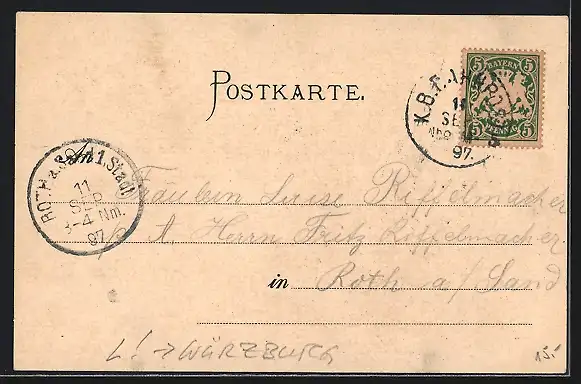 POSTKARTE.
5 BAYERN 5
5 PFENNIG 5
K.B.
11
SEP
97.
ROTH a. Sand 1. Stadt
11
SEP
3-4 Nm.
97
An
Fräulein Luise Riffelmacher
p. A. Herrn Fritz Riffelmacher
in Roth a/ Sand
L! → WÜRZBURG
15.-